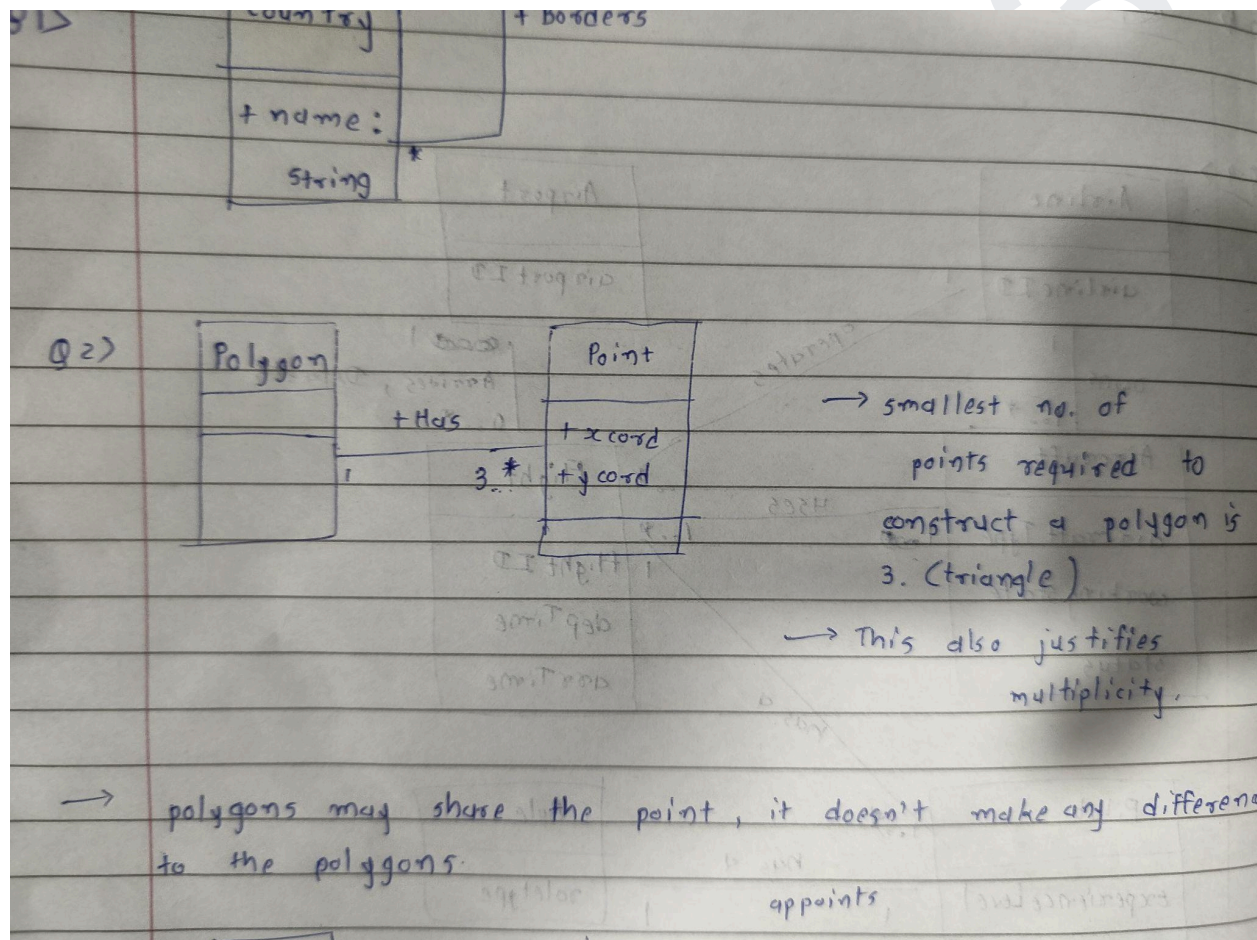 Q1>
country
+ Borders
+ name:
*
string
Q2>
Polygon
Point
+ Has
+ xcord
1
3..*
+ycord
→ smallest no. of
points required to
construct a polygon is
3. (triangle)
→ This also justifies
multiplicity.
→ polygons may share the point, it doesn't make any differenc
to the polygons.
appoints